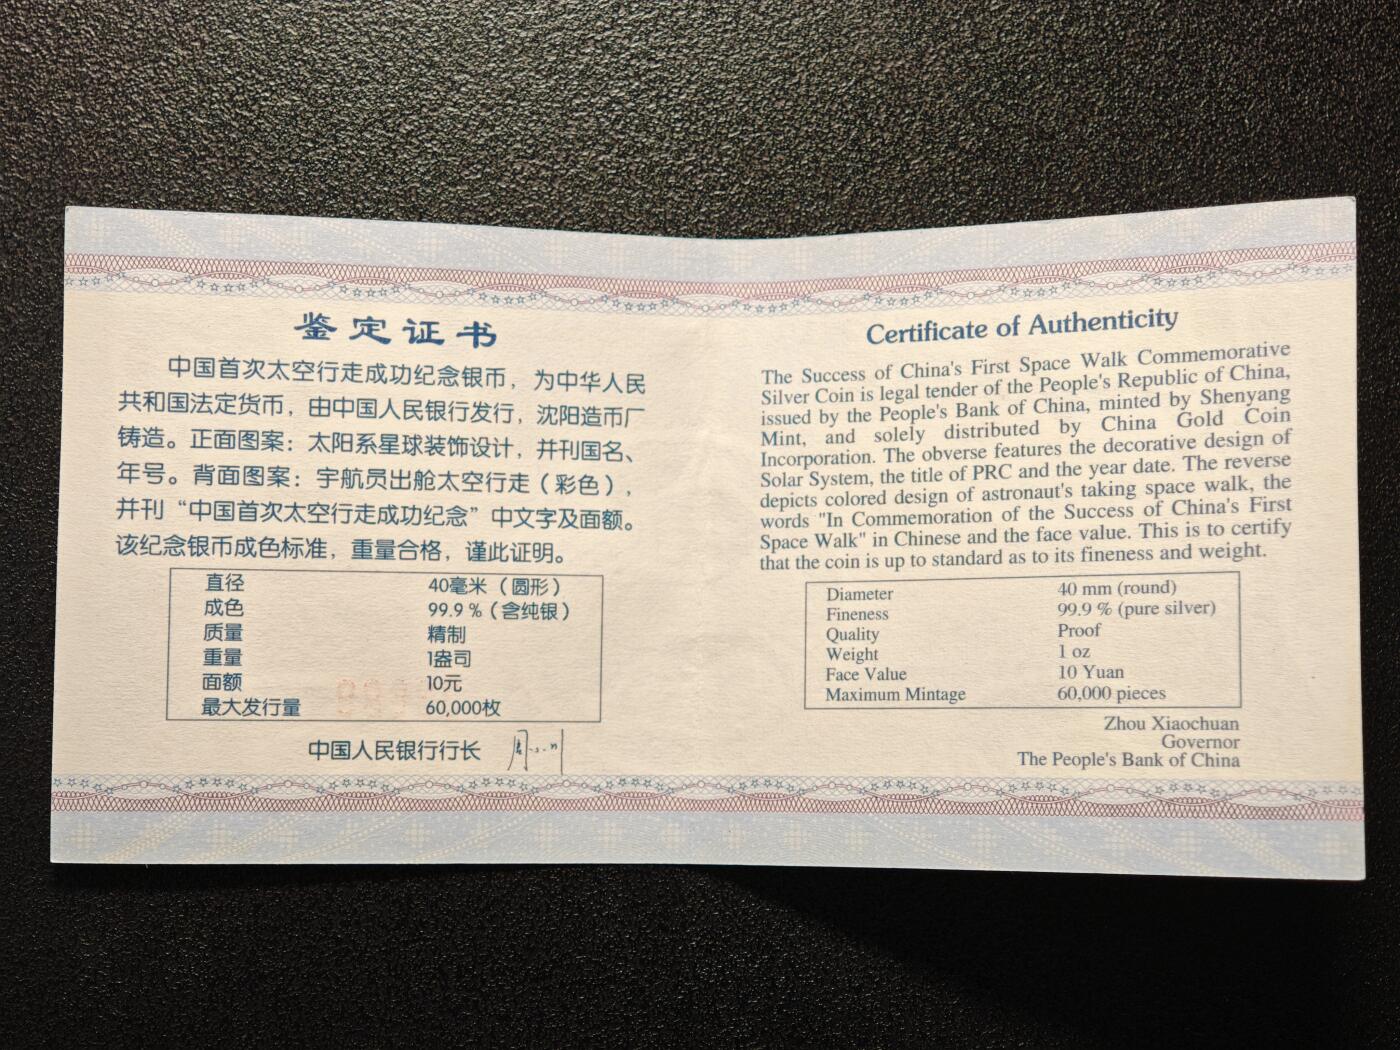 鉴定证书
中国首次太空行走成功纪念银币，为中华人民
共和国法定货币，由中国人民银行发行，沈阳造币厂
铸造。正面图案：太阳系星球装饰设计，并刊国名、
年号。背面图案：宇航员出舱太空行走（彩色），
并刊“中国首次太空行走成功纪念”中文字及面额。
该纪念银币成色标准，重量合格，谨此证明。
直径 40毫米（圆形）
成色 99.9％（含纯银）
质量 精制
重量 1盎司
面额 10元
最大发行量 60,000枚
中国人民银行行长
Certificate of Authenticity
The Success of China's First Space Walk Commemorative
Silver Coin is legal tender of the People's Republic of China,
issued by the People's Bank of China, minted by Shenyang
Mint, and solely distributed by China Gold Coin
Incorporation. The obverse features the decorative design of
Solar System, the title of PRC and the year date. The reverse
depicts colored design of astronaut's taking space walk, the
words "In Commemoration of the Success of China's First
Space Walk" in Chinese and the face value. This is to certify
that the coin is up to standard as to its fineness and weight.
Diameter 40 mm (round)
Fineness 99.9 % (pure silver)
Quality Proof
Weight 1 oz
Face Value 10 Yuan
Maximum Mintage 60,000 pieces
Zhou Xiaochuan
Governor
The People's Bank of China